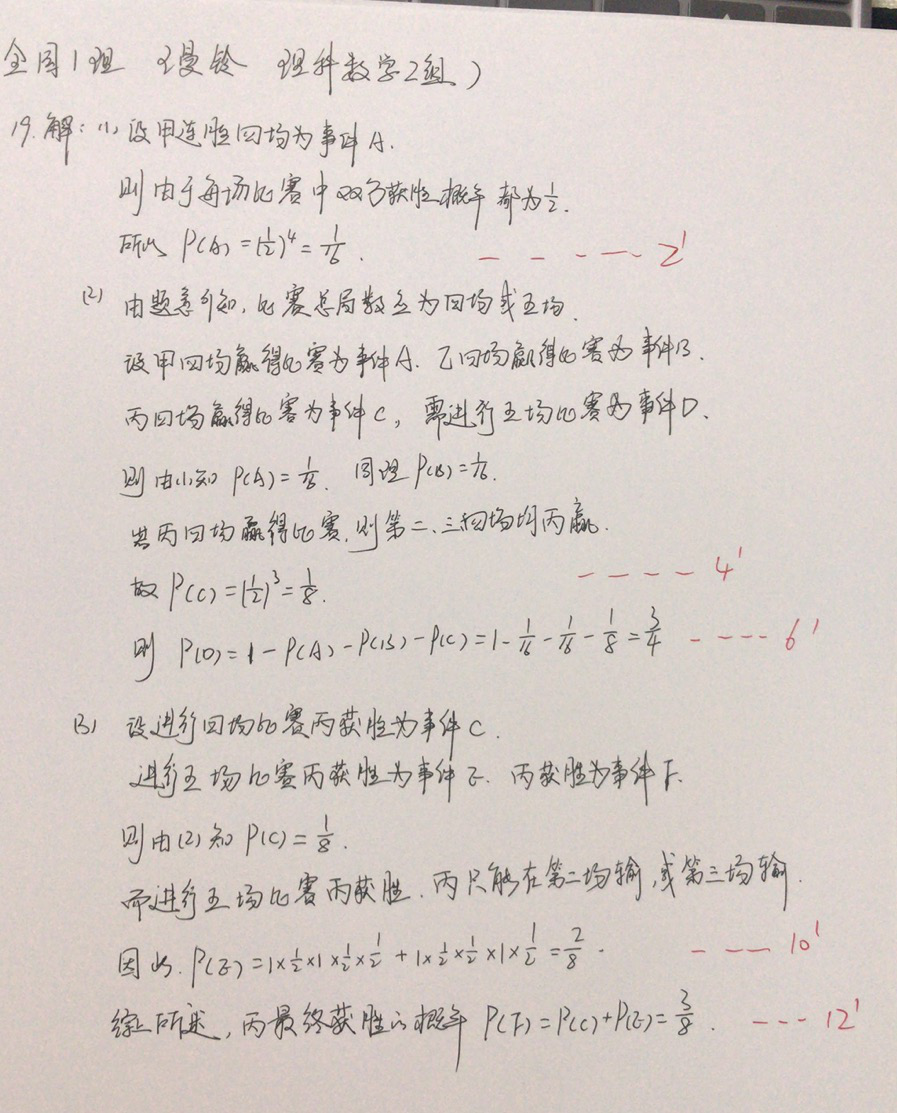 全国1理 王曼铃 理科数学2组)
19.解:(1)设甲连胜四场为事件A.
则由于每场比赛中双方获胜概率都为½.
所以 P(A)=(½)⁴=1/16. - - - - - 2'
(2) 由题意可知,比赛总局数应为四场或五场.
设甲四场赢得比赛为事件A.乙四场赢得比赛为事件B.
丙四场赢得比赛为事件C,需进行五场比赛为事件D.
则由(1)知 P(A)=1/16. 同理 P(B)=1/16.
若丙四场赢得比赛,则第二、三、四场均丙赢.
- - - - 4'
故 P(C)=(½)³=1/8.
则 P(D)=1-P(A)-P(B)-P(C)=1-1/16-1/16-1/8=3/4 - - - - 6'
(3) 设进行四场比赛丙获胜为事件C.
进行五场比赛丙获胜为事件E. 丙获胜为事件F.
则由(2)知 P(C)=1/8.
而进行五场比赛丙获胜.丙只能在第二场输,或第三场输.
因此.P(E)=1×½×1×½×½+1×½×½×1×½=2/8. - - - 10'
综上所述,丙最终获胜的概率 P(F)=P(C)+P(E)=3/8. - - - 12'